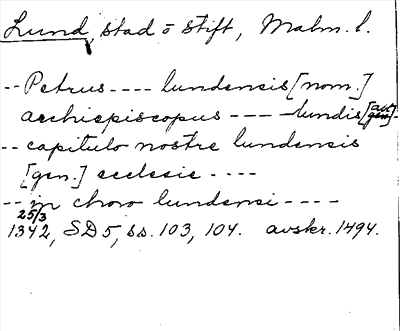 Lund, stad o stift, Malm. l.
-- Petrus ---- lundensis [nom.]
archiepiscopus --- lundis [avs. gen.] -
-- capitulo nostre lundensis
[gen.] ecclesie ----
-- in choro lundensi ----
25/3
1342, SD 5, ss. 103, 104. avskr. 1494.